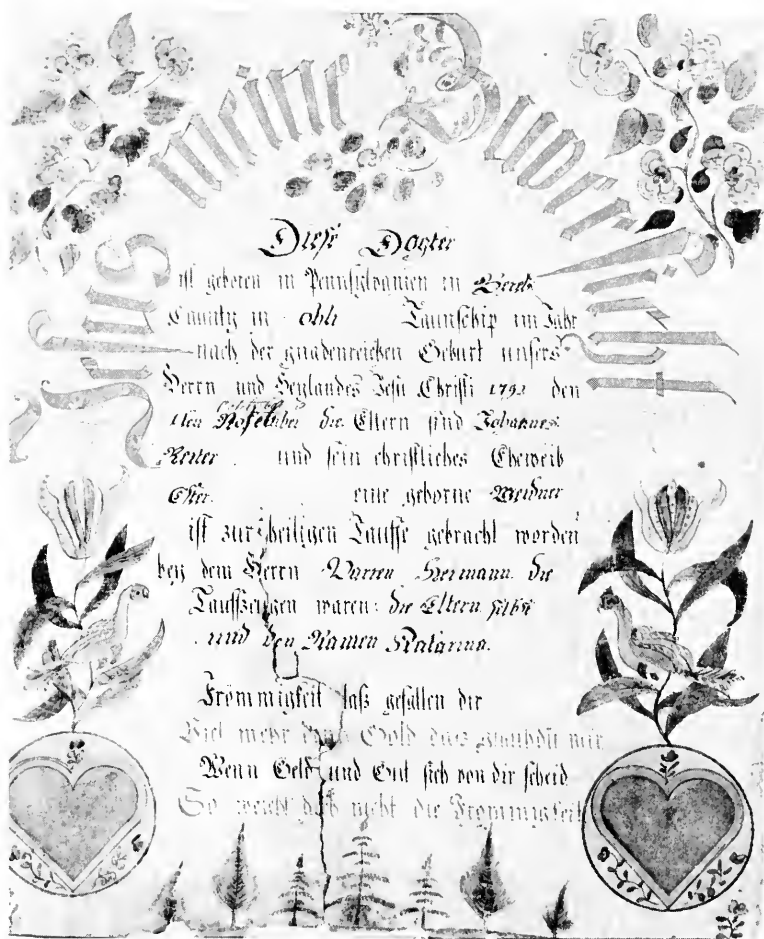 Jesus meine Zuversicht
Diese Dogter
ist geboren in Pennsylvanien in Berks
Caunty in ohli Taunschip im Jahr
nach der gnadenreichen Geburt unsers
Herrn und Heylandes Jesu Christi 1792 den
1ten die Eltern sind Johannes
Reiter und sein christliches Eheweib
Ester eine geborne Weidner
ist zur heiligen Tauffe gebracht worden
bey dem Herrn Parren Hermann. die
Tauffzeugen waren: die Eltern selbst
und den Namen Katarina.
Frömmigkeit laß gefallen dir
Viel mehr dann Gold das glaubdu mir
Wenn Geld und Gut sich von dir scheid
So weicht doch nicht die Frommigkeit